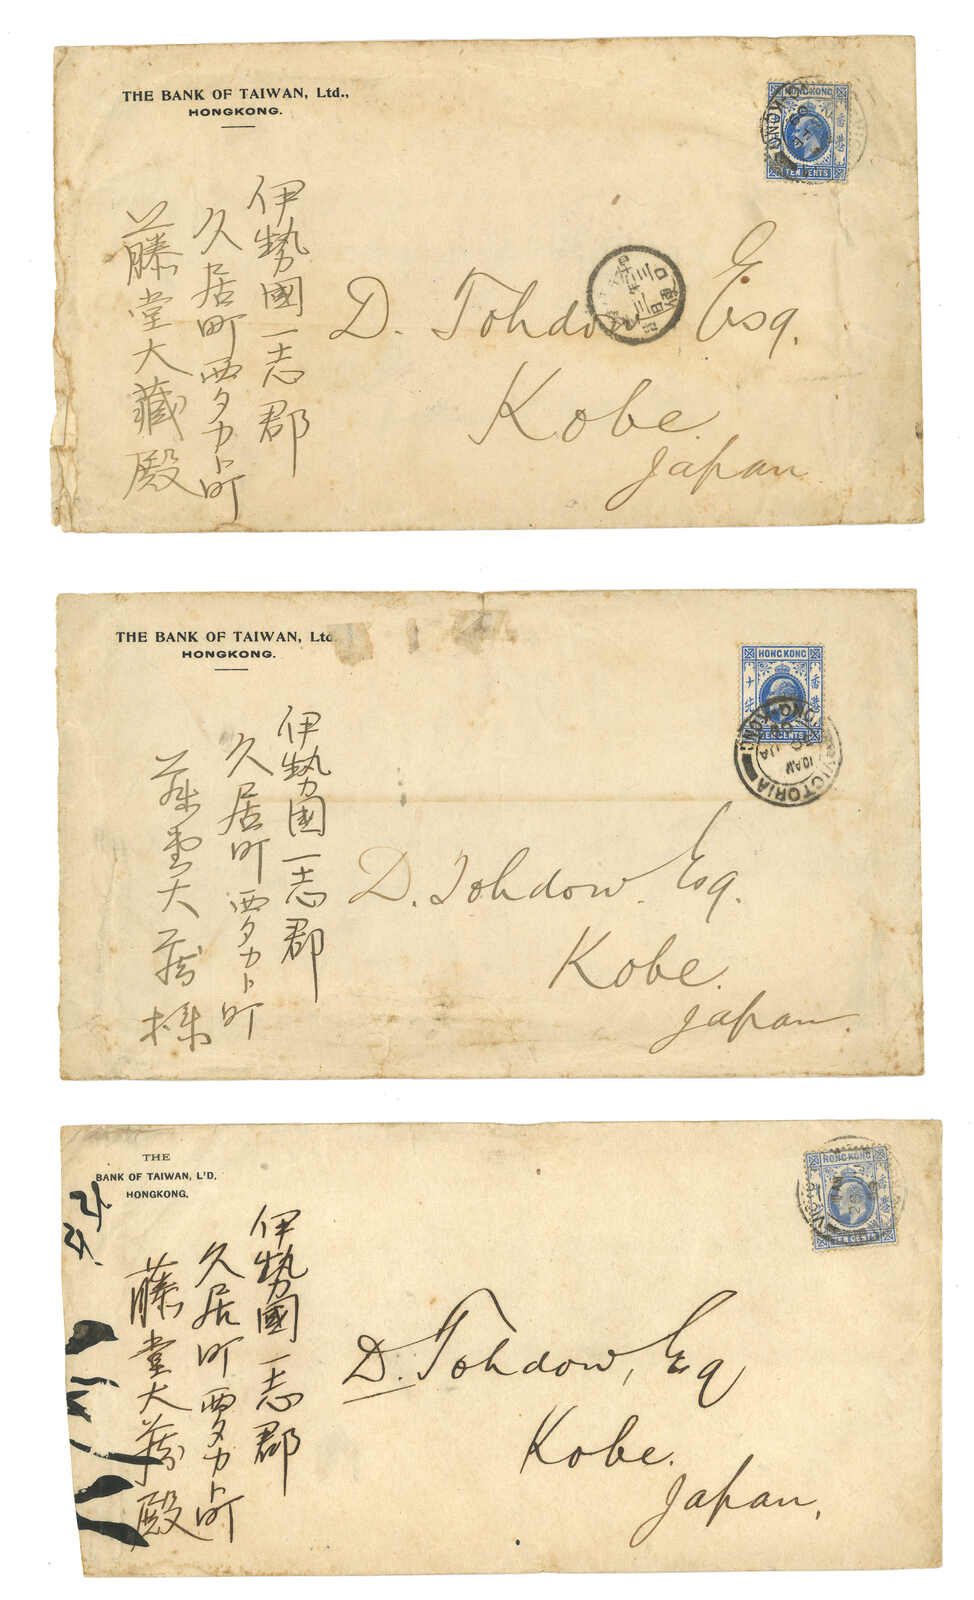 THE BANK OF TAIWAN, Ltd.,
HONGKONG.
HONG KONG
香港
TEN CENTS
伊勢國一志郡
久居町西タカト町
藤堂大藏殿
D. Tohdow Esq.
Kobe.
Japan
THE BANK OF TAIWAN, Ltd.
HONGKONG.
HONG KONG
香港
TEN CENTS
VICTORIA
HONG KONG
10 AM
伊勢國一志郡
久居町西タカト町
藤堂大藏様
D. Tohdow Esq.
Kobe.
Japan.
THE
BANK OF TAIWAN, L'D.
HONGKONG.
HONG KONG
香港
TEN CENTS
伊勢國一志郡
久居町西タカト町
藤堂大藏殿
D. Tohdow, Eq
Kobe.
Japan.